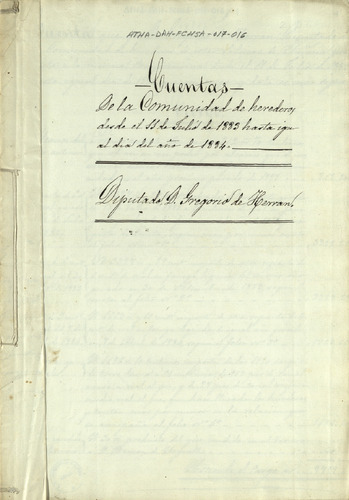 ATHA-DAH-FCHSA-017-016
Cuentas
De la Comunidad de herederos
desde el 11 de Julio de 1883 hasta igu
al dia del año de 1884.
Diputado D. Gregorio de Herran.